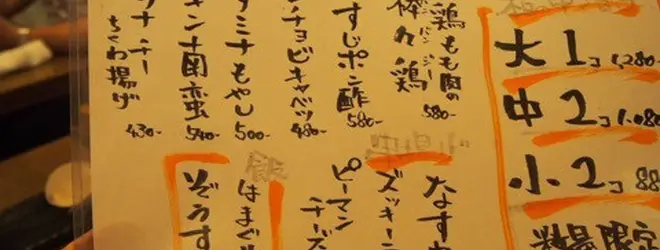 大 1コ 1,280-
中 2コ 1,080
小 2コ 88
数量限定
鶏もも肉の
棒々鶏 バンジー 580-
すじポン酢 580-
チョビキャベツ 480-
タミナもやし 500-
キン南蛮 540-
ツナチー
ちくわ揚げ 430-
なす
ズッキーニ
ピーマン
チーズ
飯
はまぐ
ぞうす